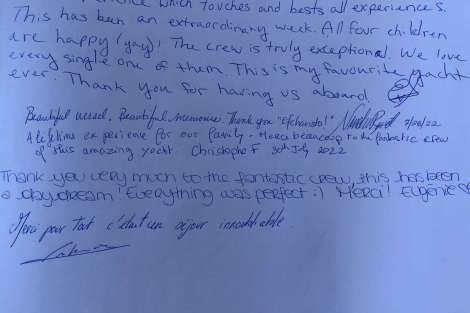 experience which touches and bests all experiences.
This has been an extraordinary week. All four children
are happy (yay)! The crew is truly exceptional. We love
every single one of them. This is my favourite yacht
ever. Thank you for having us aboard
Beautiful vessel, Beautiful memories. Thank you "Efcharisto!" /22
A lifetime experience for our family. Merci beaucoup to the fantastic crew
of this amazing yacht. Christophe F 30th July 2022
Thank you very much to the fantastic crew, this has been
a daydream! Everything was perfect :) Merci! Eugénie
Merci pour tout c'était un séjour innoubliable.